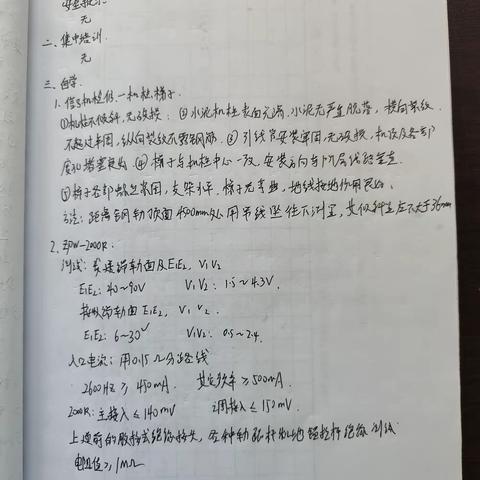 无
二、集中培训.
无
三、自学.
1. 信号机检修 — 机柱、梯子
①机柱不倾斜,无破损. ②水泥机柱表面完满,水泥无严重脱落,横向裂纹
不超过半周,纵向裂纹不露钢筋. ③引线管安装牢固,无破损,机构及各部
④梯子与机柱中心一致,安装方向与所属线路垂直.
⑤梯子各部螺丝紧固,支架水平,梯子无弯曲,地线接地作用良好.
方法:距离钢轨顶面4500mm处用吊线坠往下测量,其倾斜量应不大于36mm
2. ZPW-2000R:
测试:发接端轨面及E1E2, V1V2
E1E2: 40~90V V1V2: 1.5~4.3V.
接收端轨面E1E2, V1V2.
E1E2: 6~30V V1V2: 0.5~2.4.
入口电流:用0.15Ω分路线
2600HZ ≥ 450mA. 其它频率 ≥ 500mA.
2000R:主接入 ≤ 140mV 调接入 ≤ 150mV.
绝缘测试
电阻值 ≥ 1MΩ